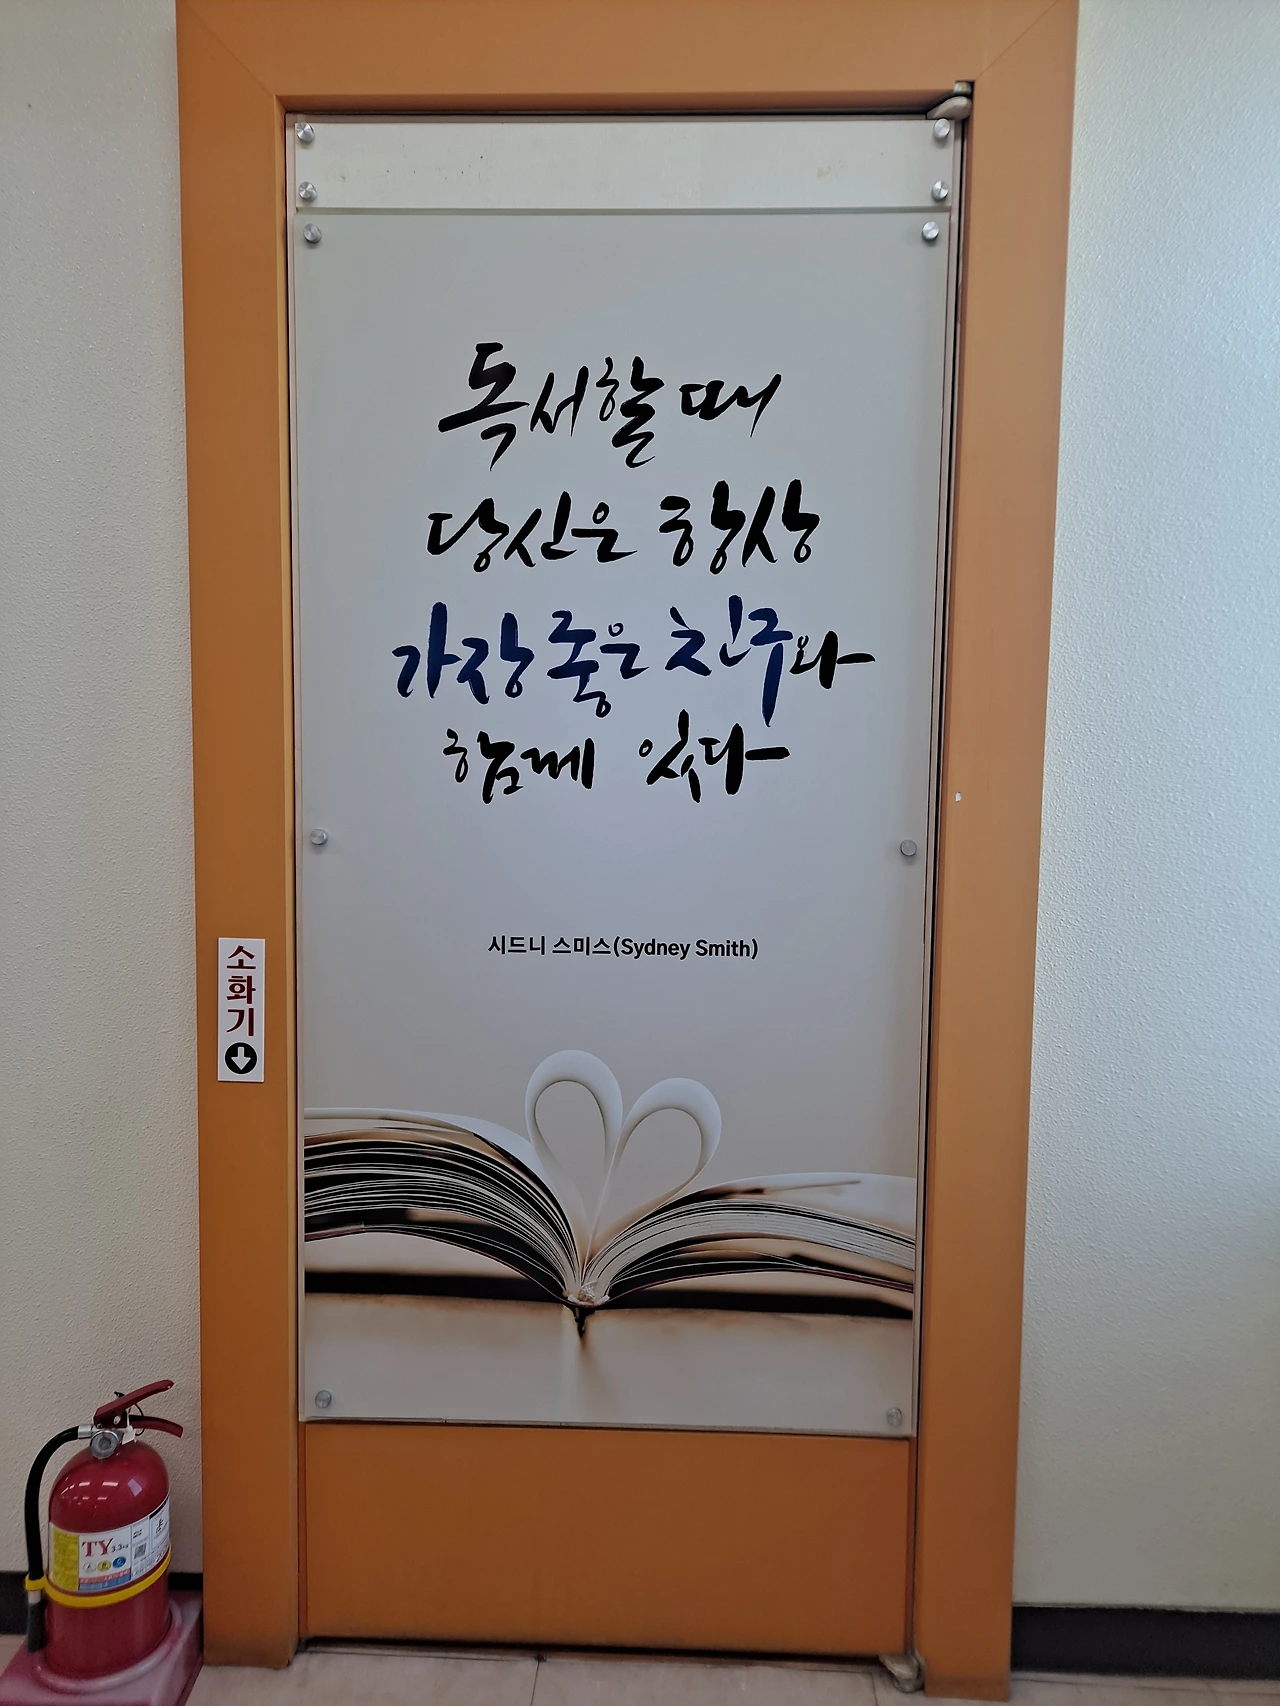 독서할 때
당신은 항상
가장 좋은 친구와
함께 있다
시드니 스미스(Sydney Smith)
소화기
TY 3.3kg